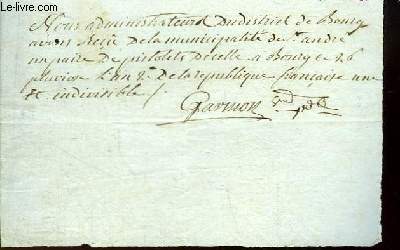 LE-LIVRE.COM
Nous administrateurs Du district de Bourg
avons Reçu De la municipalité de St. andré
un paire de pistolets De celle a Bourg ce 26
pluviose l'an 2e De la republique francaise une
et indivisible /.